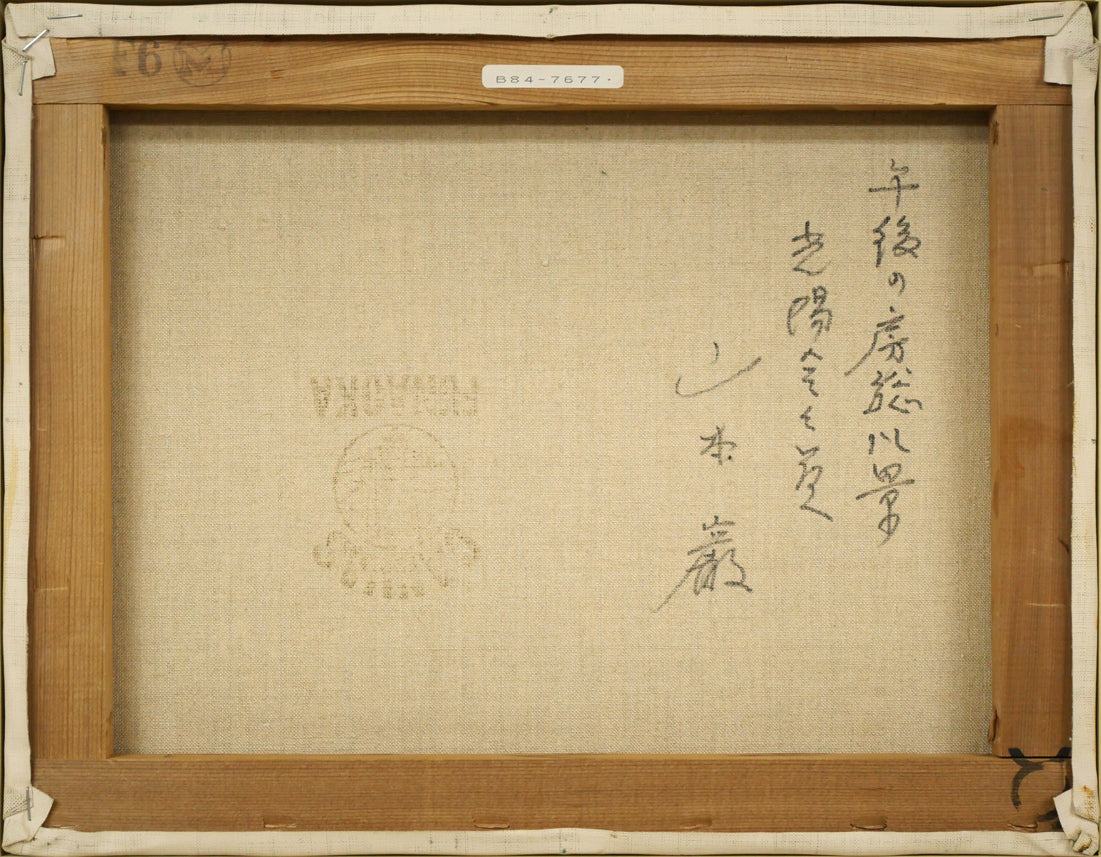 F6 M
B84-7677.
午後の房総風景
光陽会々員
山本 巌
FUNAOKA